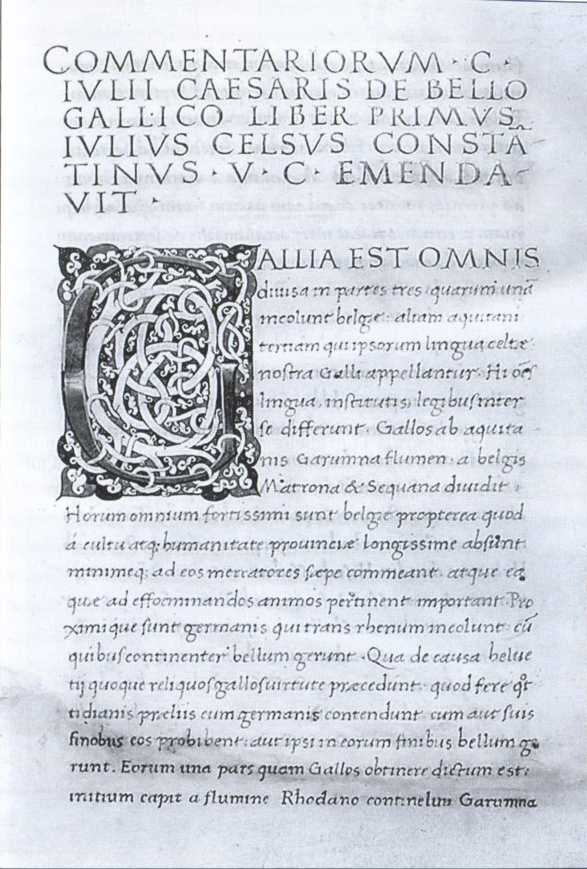 COMMENTARIORVM · C ·
IVLII CAESARIS DE BELLO
GALLICO LIBER PRIMVS
IVLIVS CELSVS CONSTĀ
TINVS · V · C · EMENDA
VIT ·
GALLIA EST OMNIS
diuisa in partes tres quarum unā
incolunt belgę aliam aquitani
tertiam qui ipsorum lingua celtæ
nostra Galli appellantur. Hi oēs
lingua, institutis, legibus inter
se differunt. Gallos ab aquita
nis Garumna flumen. a belgis
Matrona & Sequana diuidit.
Horum omnium fortissimi sunt belgę propterea quod
á cultu atq; humanitate prouinciæ longissime absunt.
minimeq; ad eos mercatores sępe commeant. atque ea
quæ ad effœminandos animos pertinent important. Pro
ximique sunt germanis qui trans rhenum incolunt cū
quibus continenter bellum gerunt. Qua de causa helue
tij quoque reliquos gallos uirtute præcedunt. quod fere
tidianis præliis cum germanis contendunt. cum aut suis
finobus eos prohibent. aut ipsi in eorum finibus bellum ge
runt. Eorum una pars quam Gallos obtinere dictum est.
initium capit a flumine Rhodano continetur Garumna